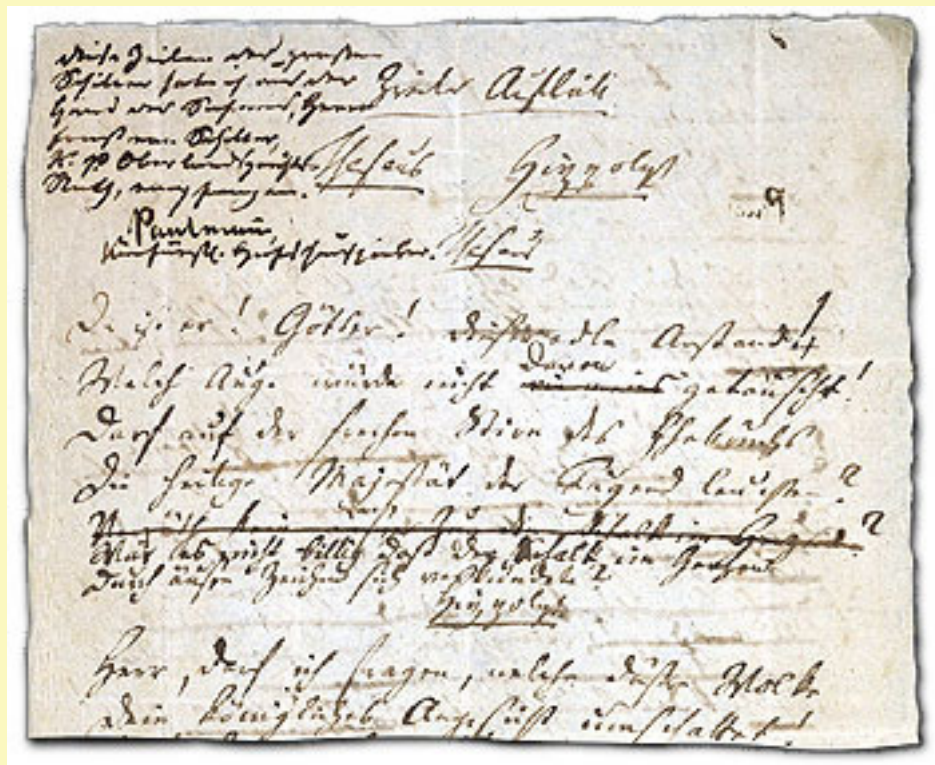 Diese Zeilen des grossen
Schiller habe ich aus der
Hand des Sohnes, Herrn
Ernst von Schiller,
K. P. Oberlandgerichts-
Rath, empfangen.
Hofschauspieler.
Zweiter Auftritt
Theseus Hippolyt
Theseus
Da ist er! Götter! Dieser edle Anstand!
Welch Auge würde nicht davon getäuscht!
Darf auf der frechen Stirn des Ehebruchs
Die heilige Majestät der Tugend leuchten?
Wär es nicht billig daß der Schalk im Herzen
Durch äußre Zeichen sich verkündete?
Hippolyt
Herr, darf ich fragen, welche düstre Wolke
Dein königliches Angesicht umschattet?